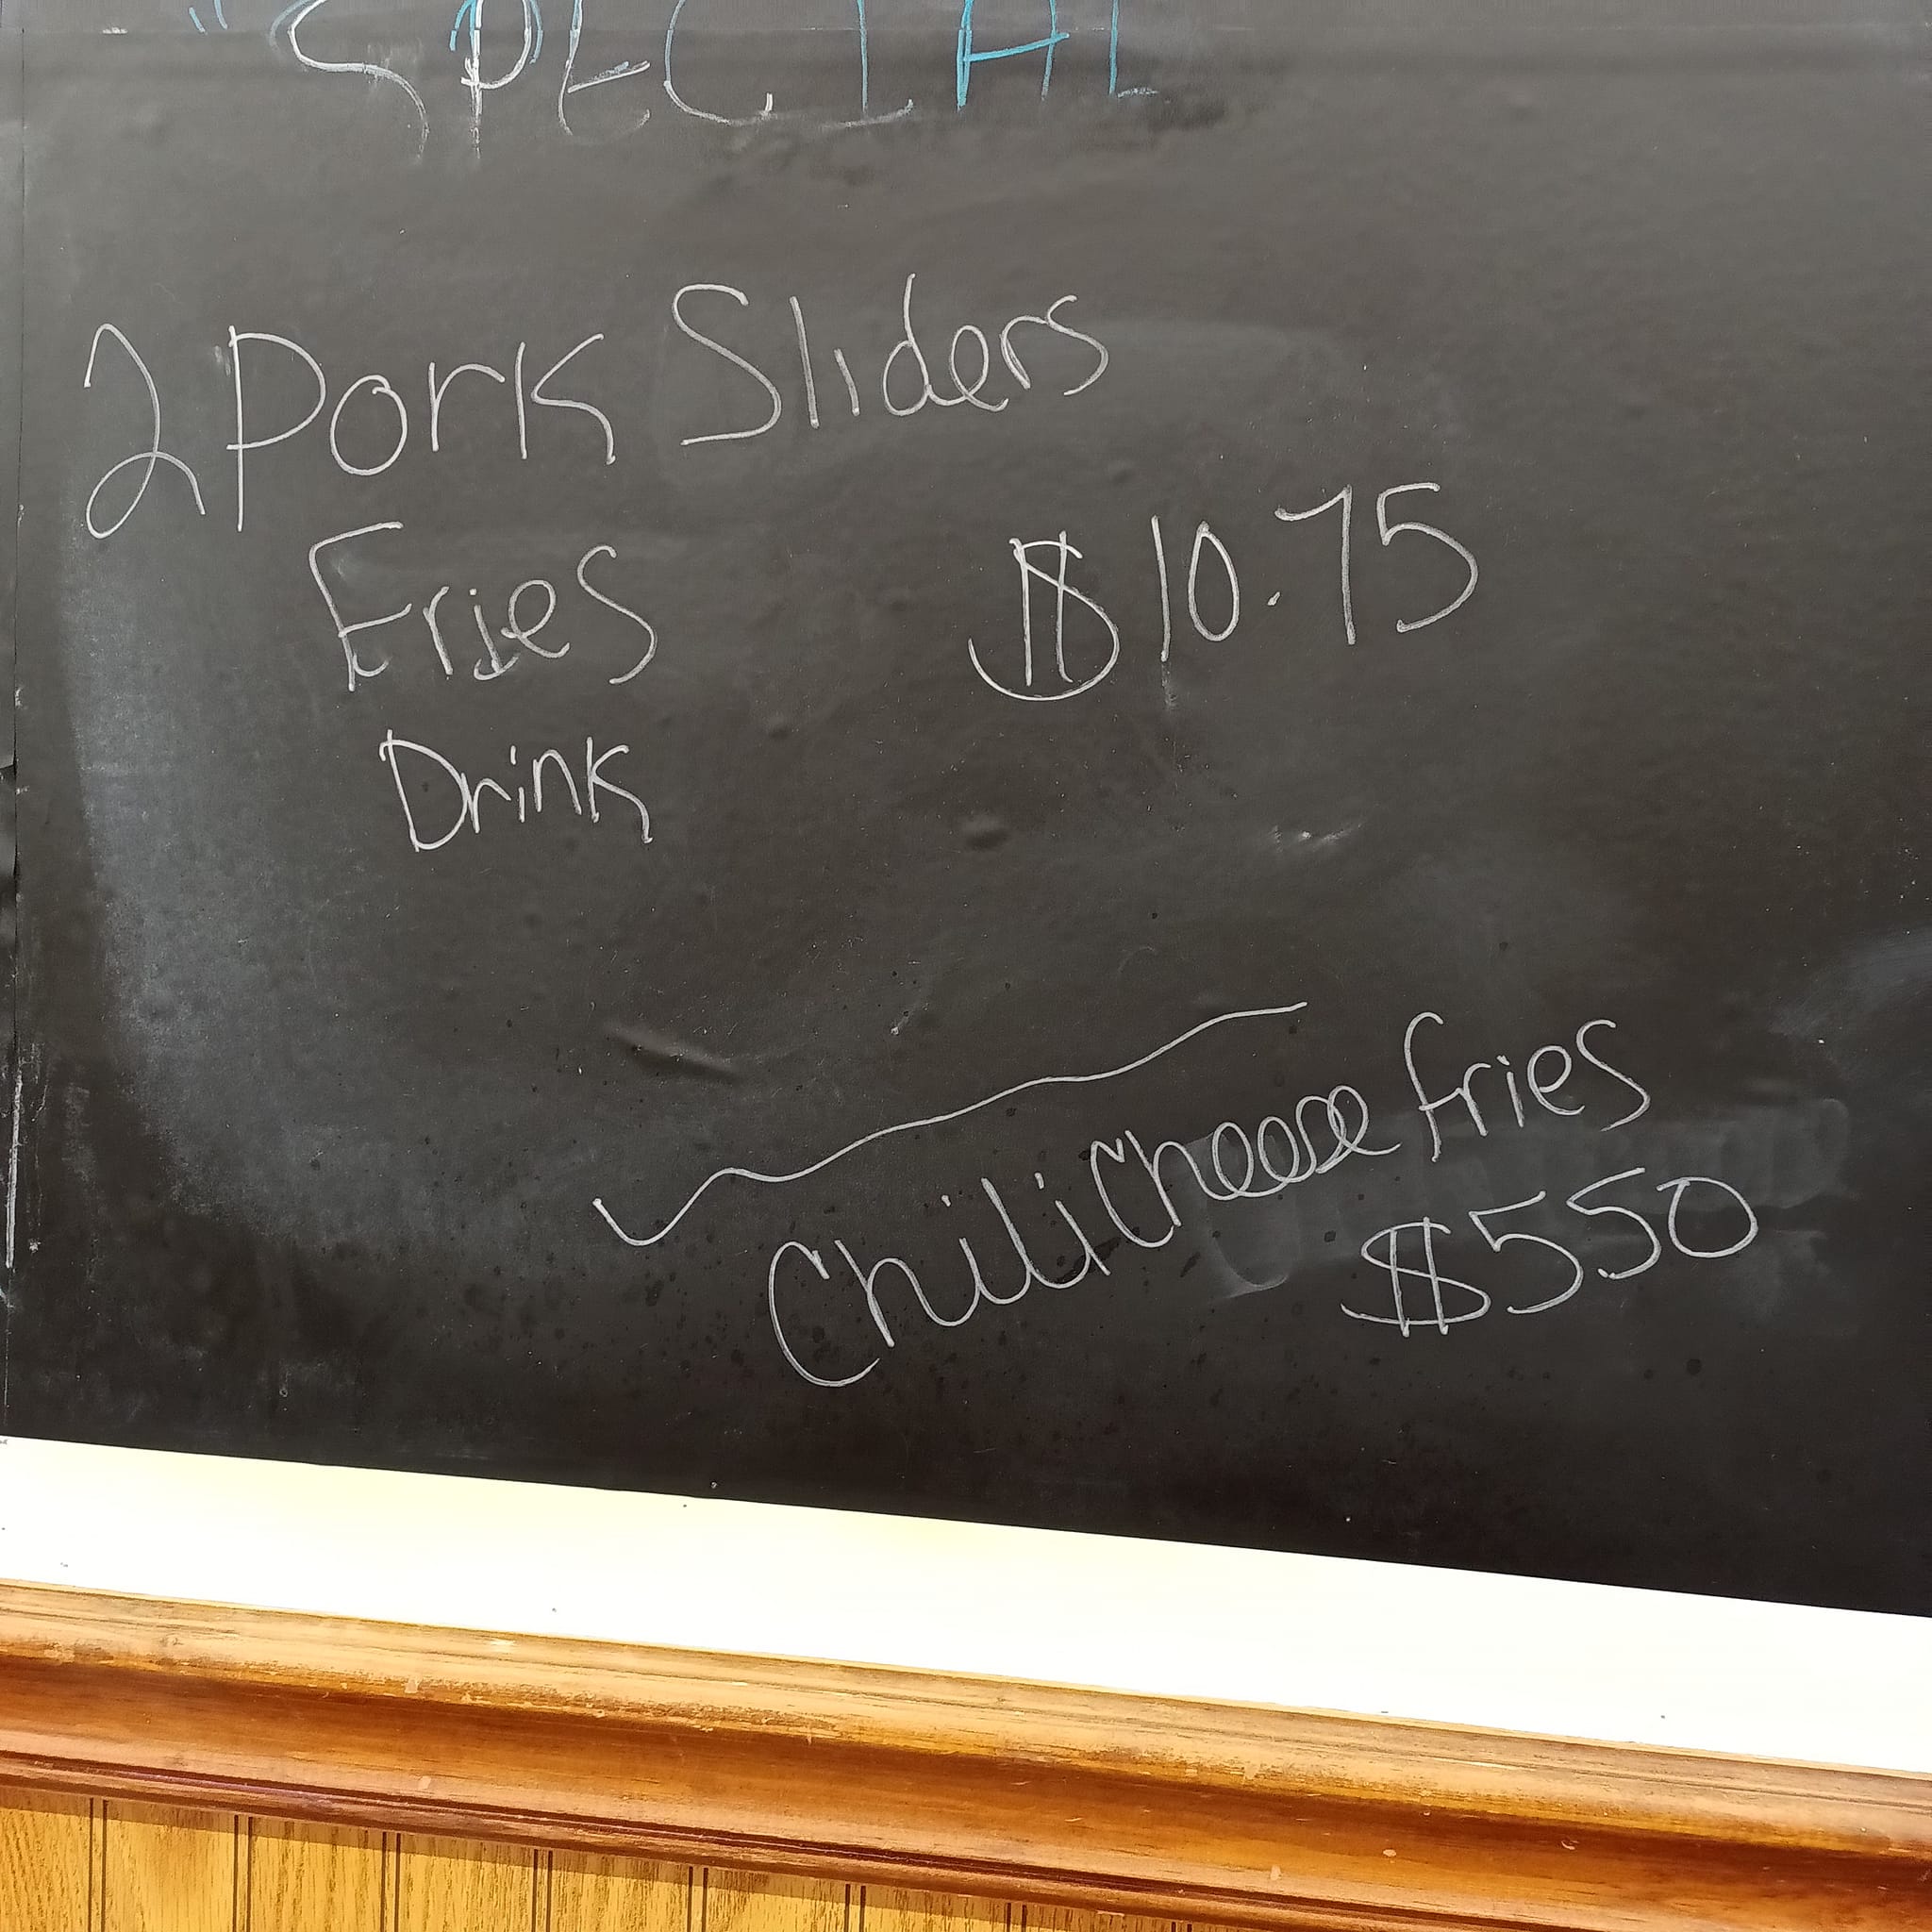 "SPECIAL
2 Pork Sliders
Fries $10.75
Drink
Chili Cheese fries
$550